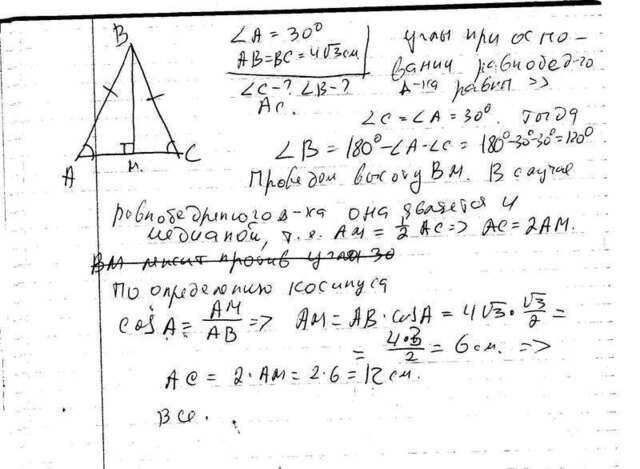 B
A
M
C
∠A = 30°
AB=BC=4√3см
∠C-? ∠B-?
AC.
углы при осно-
вании равнобед-го
Δ-ка равны =>
∠C=∠A=30°. Тогда
∠B = 180°-∠A-∠C = 180°-30°-30°=120°
Проведём высоту BM. В случае
равнобедренного Δ-ка она является и
медианой, т.е. AM = 1/2 AC => AC=2AM.
BM лежит против угла 30
По определению косинуса
cos A = AM/AB => AM = AB · cos A = 4√3 · √3/2 =
= 4·3/2 = 6 см. =>
AC = 2·AM = 2·6 = 12 см.
Все.